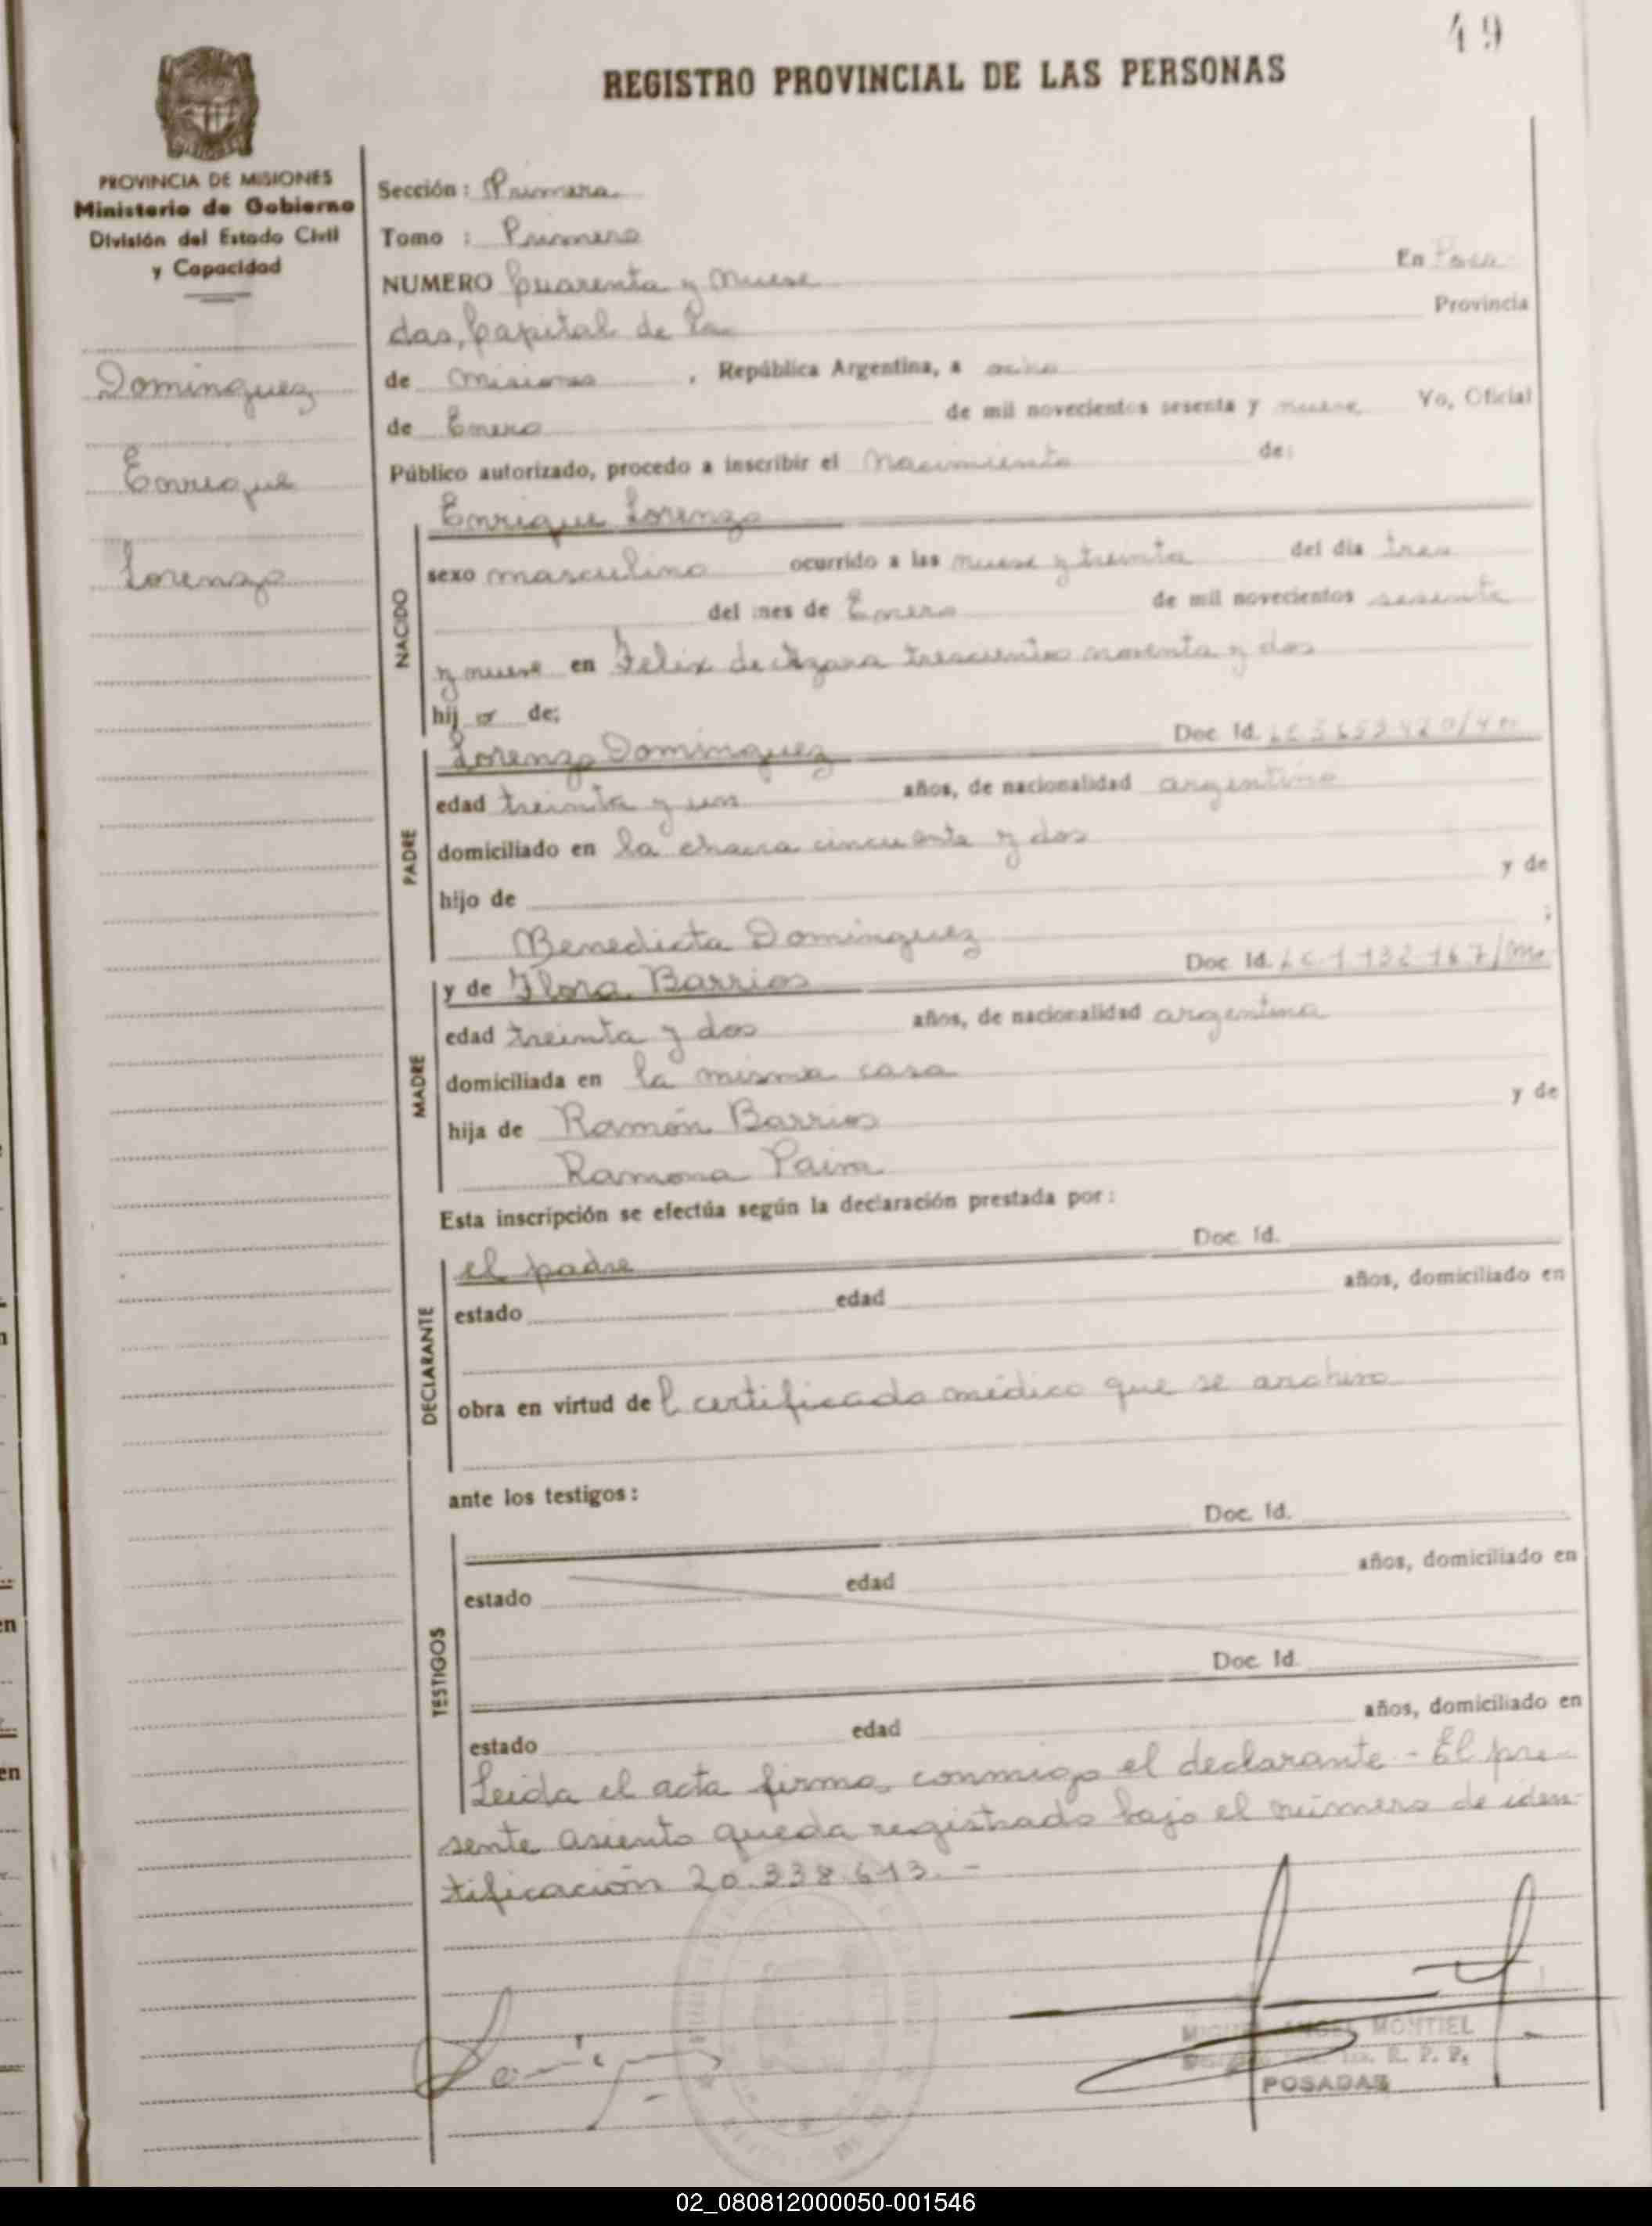 49
REGISTRO PROVINCIAL DE LAS PERSONAS
PROVINCIA DE MISIONES
Ministerio de Gobierno
División del Estado Civil
y Capacidad
Dominguez
Enrique
Lorenzo
Sección: Primera
Tomo : Primero
NUMERO Cuarenta y nueve En Posa
das, Capital de la Provincia
de Misiones , República Argentina, a
de Enero de mil novecientos sesenta y nueve, Yo, Oficial
Público autorizado, procedo a inscribir el Nacimiento de:
NACIDO
Enrique Lorenzo
sexo masculino ocurrido a las nueve y treinta del dia tres
del mes de Enero de mil novecientos sesenta
y nueve en Felix de Azara trescientos noventa y dos
hij o de;
PADRE
Lorenzo Dominguez Doc. Id.
edad treinta y un años, de nacionalidad argentino
domiciliado en la chacra cincuenta y dos
hijo de y de
Benedicta Dominguez ;
MADRE
y de Flora Barrios Doc. Id. LC 1 132 167/
edad treinta y dos años, de nacionalidad argentina
domiciliada en la misma casa
hija de Ramón Barrios y de
Ramona
Esta inscripción se efectúa según la declaración prestada por:
DECLARANTE
el padre Doc. Id.
estado edad años, domiciliado en
obra en virtud de l certificado médico que se archivo
ante los testigos:
TESTIGOS
Doc. Id.
estado edad años, domiciliado en
Doc. Id.
estado edad años, domiciliado en
Leida el acta firma conmigo el declarante - El pre-
sente asiento queda registrado bajo el número de iden-
tificación 20.338.613.-
MIGUEL ANGEL MONTIEL
R. P. P.
POSADAS
02_080812000050-001546